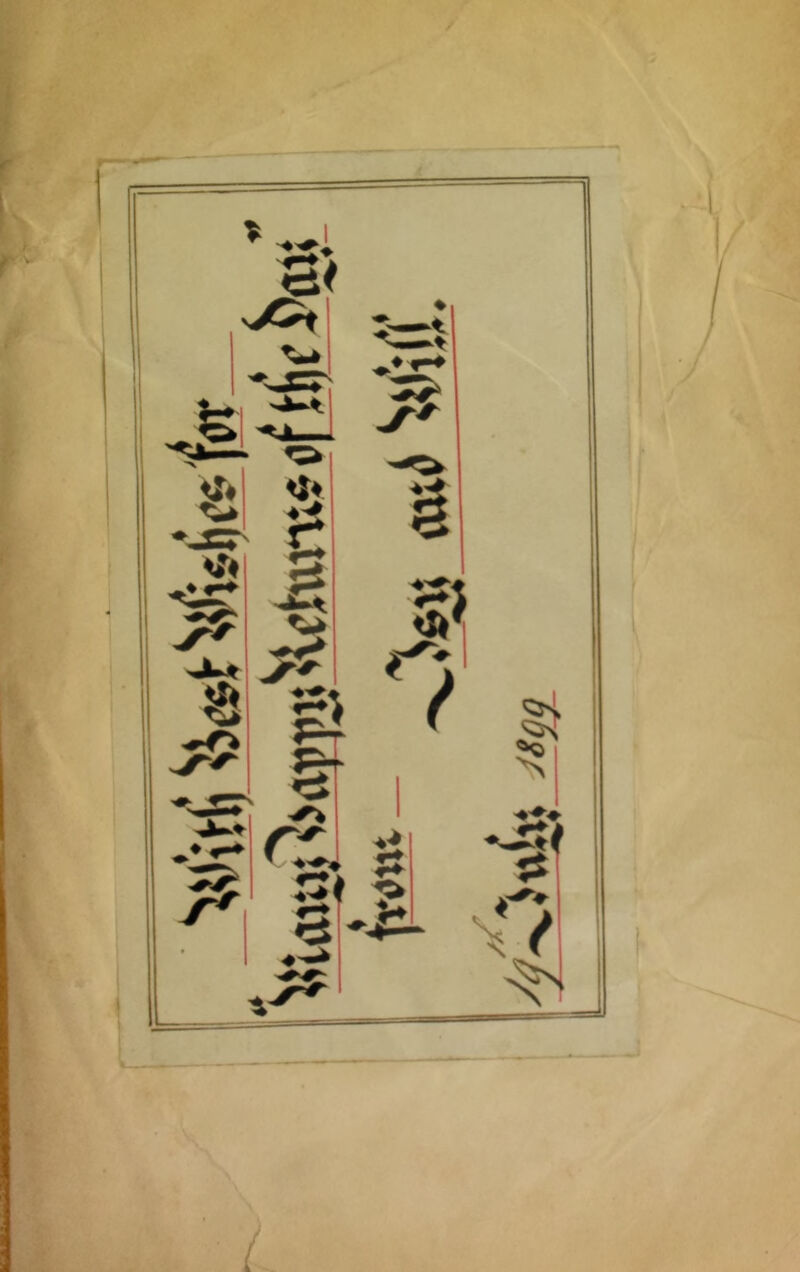 With Best Wishes for —
"Many Happy Returns of the Day."
from —
Isy and Will.
19th July, 1899